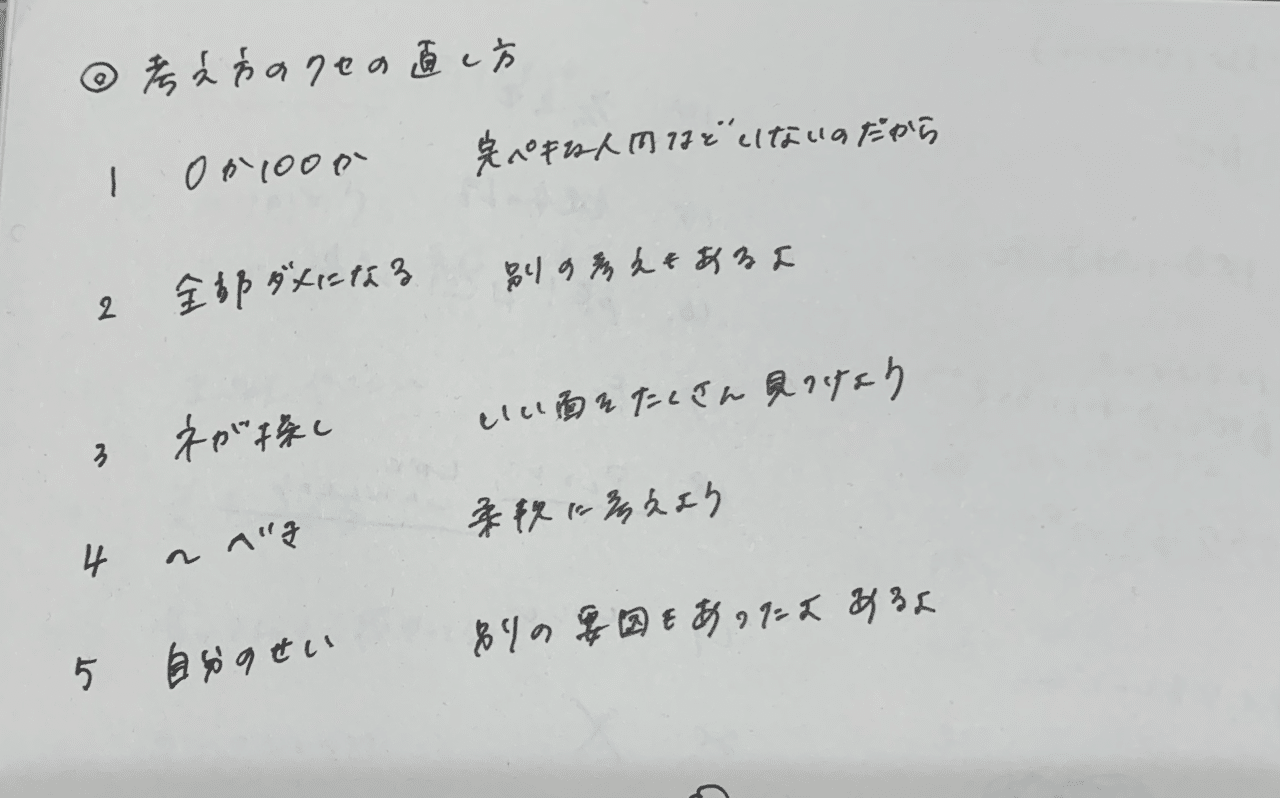 ◎ 考え方のクセの直し方
1 0か100か 完ペキな人間などいないのだから
2 全部ダメになる 別の考えもあるよ
3 ネガ探し いい面をたくさん見つけよう
4 〜べき 柔軟に考えよう
5 自分のせい 別の要因もあったよ あるよ